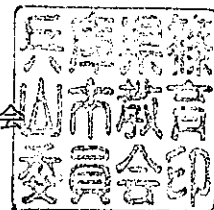 兵庫県篠
山市教育
委員会印
会